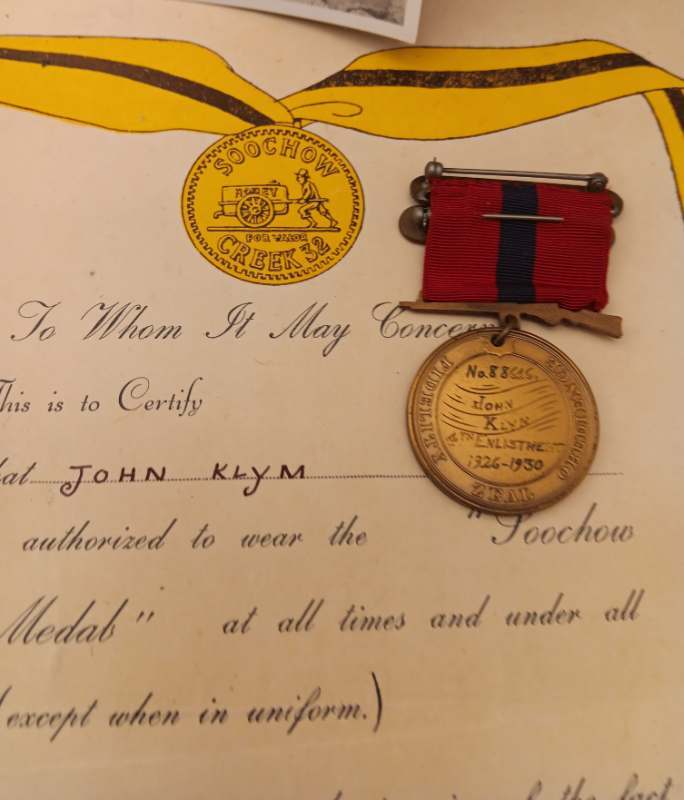 SOOCHOW
FOR VALOR
CREEK 32
To Whom It May Concern
This is to Certify
JOHN KLYM
authorized to wear the "Soochow
Medal" at all times and under all
(except when in uniform.)
the fact
No. 88
JOHN
KLYM
4TH ENLISTMENT
1926-1930
FIDELITY
ZEAL
OBEDIENCE